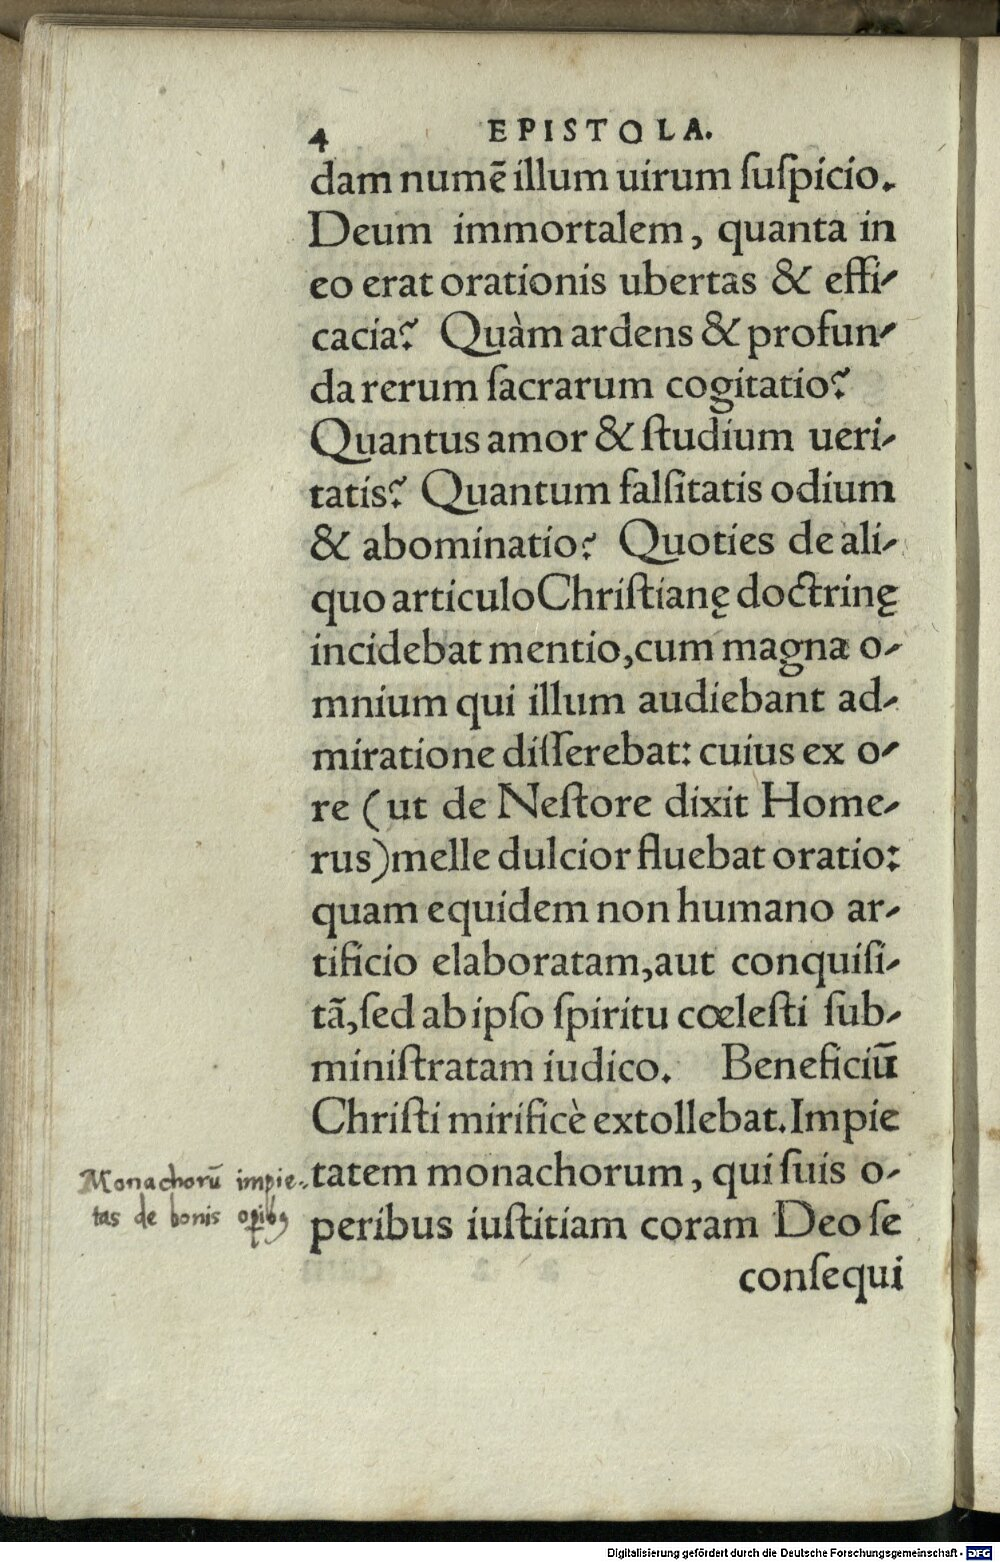 4 EPISTOLA.
dam numē illum uirum ſuſpicio.
Deum immortalem, quanta in
eo erat orationis ubertas & effi-
cacia? Quàm ardens & profun-
da rerum ſacrarum cogitatio?
Quantus amor & ſtudium ueri-
tatis? Quantum falſitatis odium
& abominatio? Quoties de ali-
quo articulo Chriſtianę doctrinę
incidebat mentio, cum magna o-
mnium qui illum audiebant ad-
miratione diſſerebat: cuius ex o-
re (ut de Neſtore dixit Home-
rus) melle dulcior fluebat oratio:
quam equidem non humano ar-
tificio elaboratam, aut conquiſi-
tã, ſed ab ipſo ſpiritu cœleſti ſub-
miniſtratam iudico. Beneficiū
Chriſti mirificè extollebat. Impie
tatem monachorum, qui ſuis o-
peribus iuſtitiam coram Deo ſe
conſequi
Monachorū impie-
tas de bonis opibꝰ
Digitalisierung gefördert durch die Deutsche Forschungsgemeinschaft - DFG